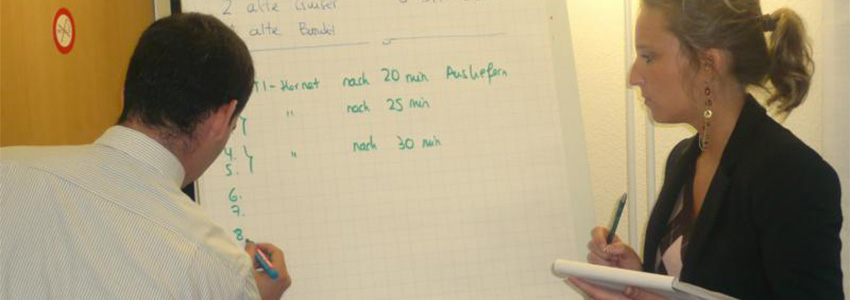 2 alte
alte
nach 20 min Ausliefern
" nach 25 min
4. } " nach 30 min
5.
6.
7.
8.